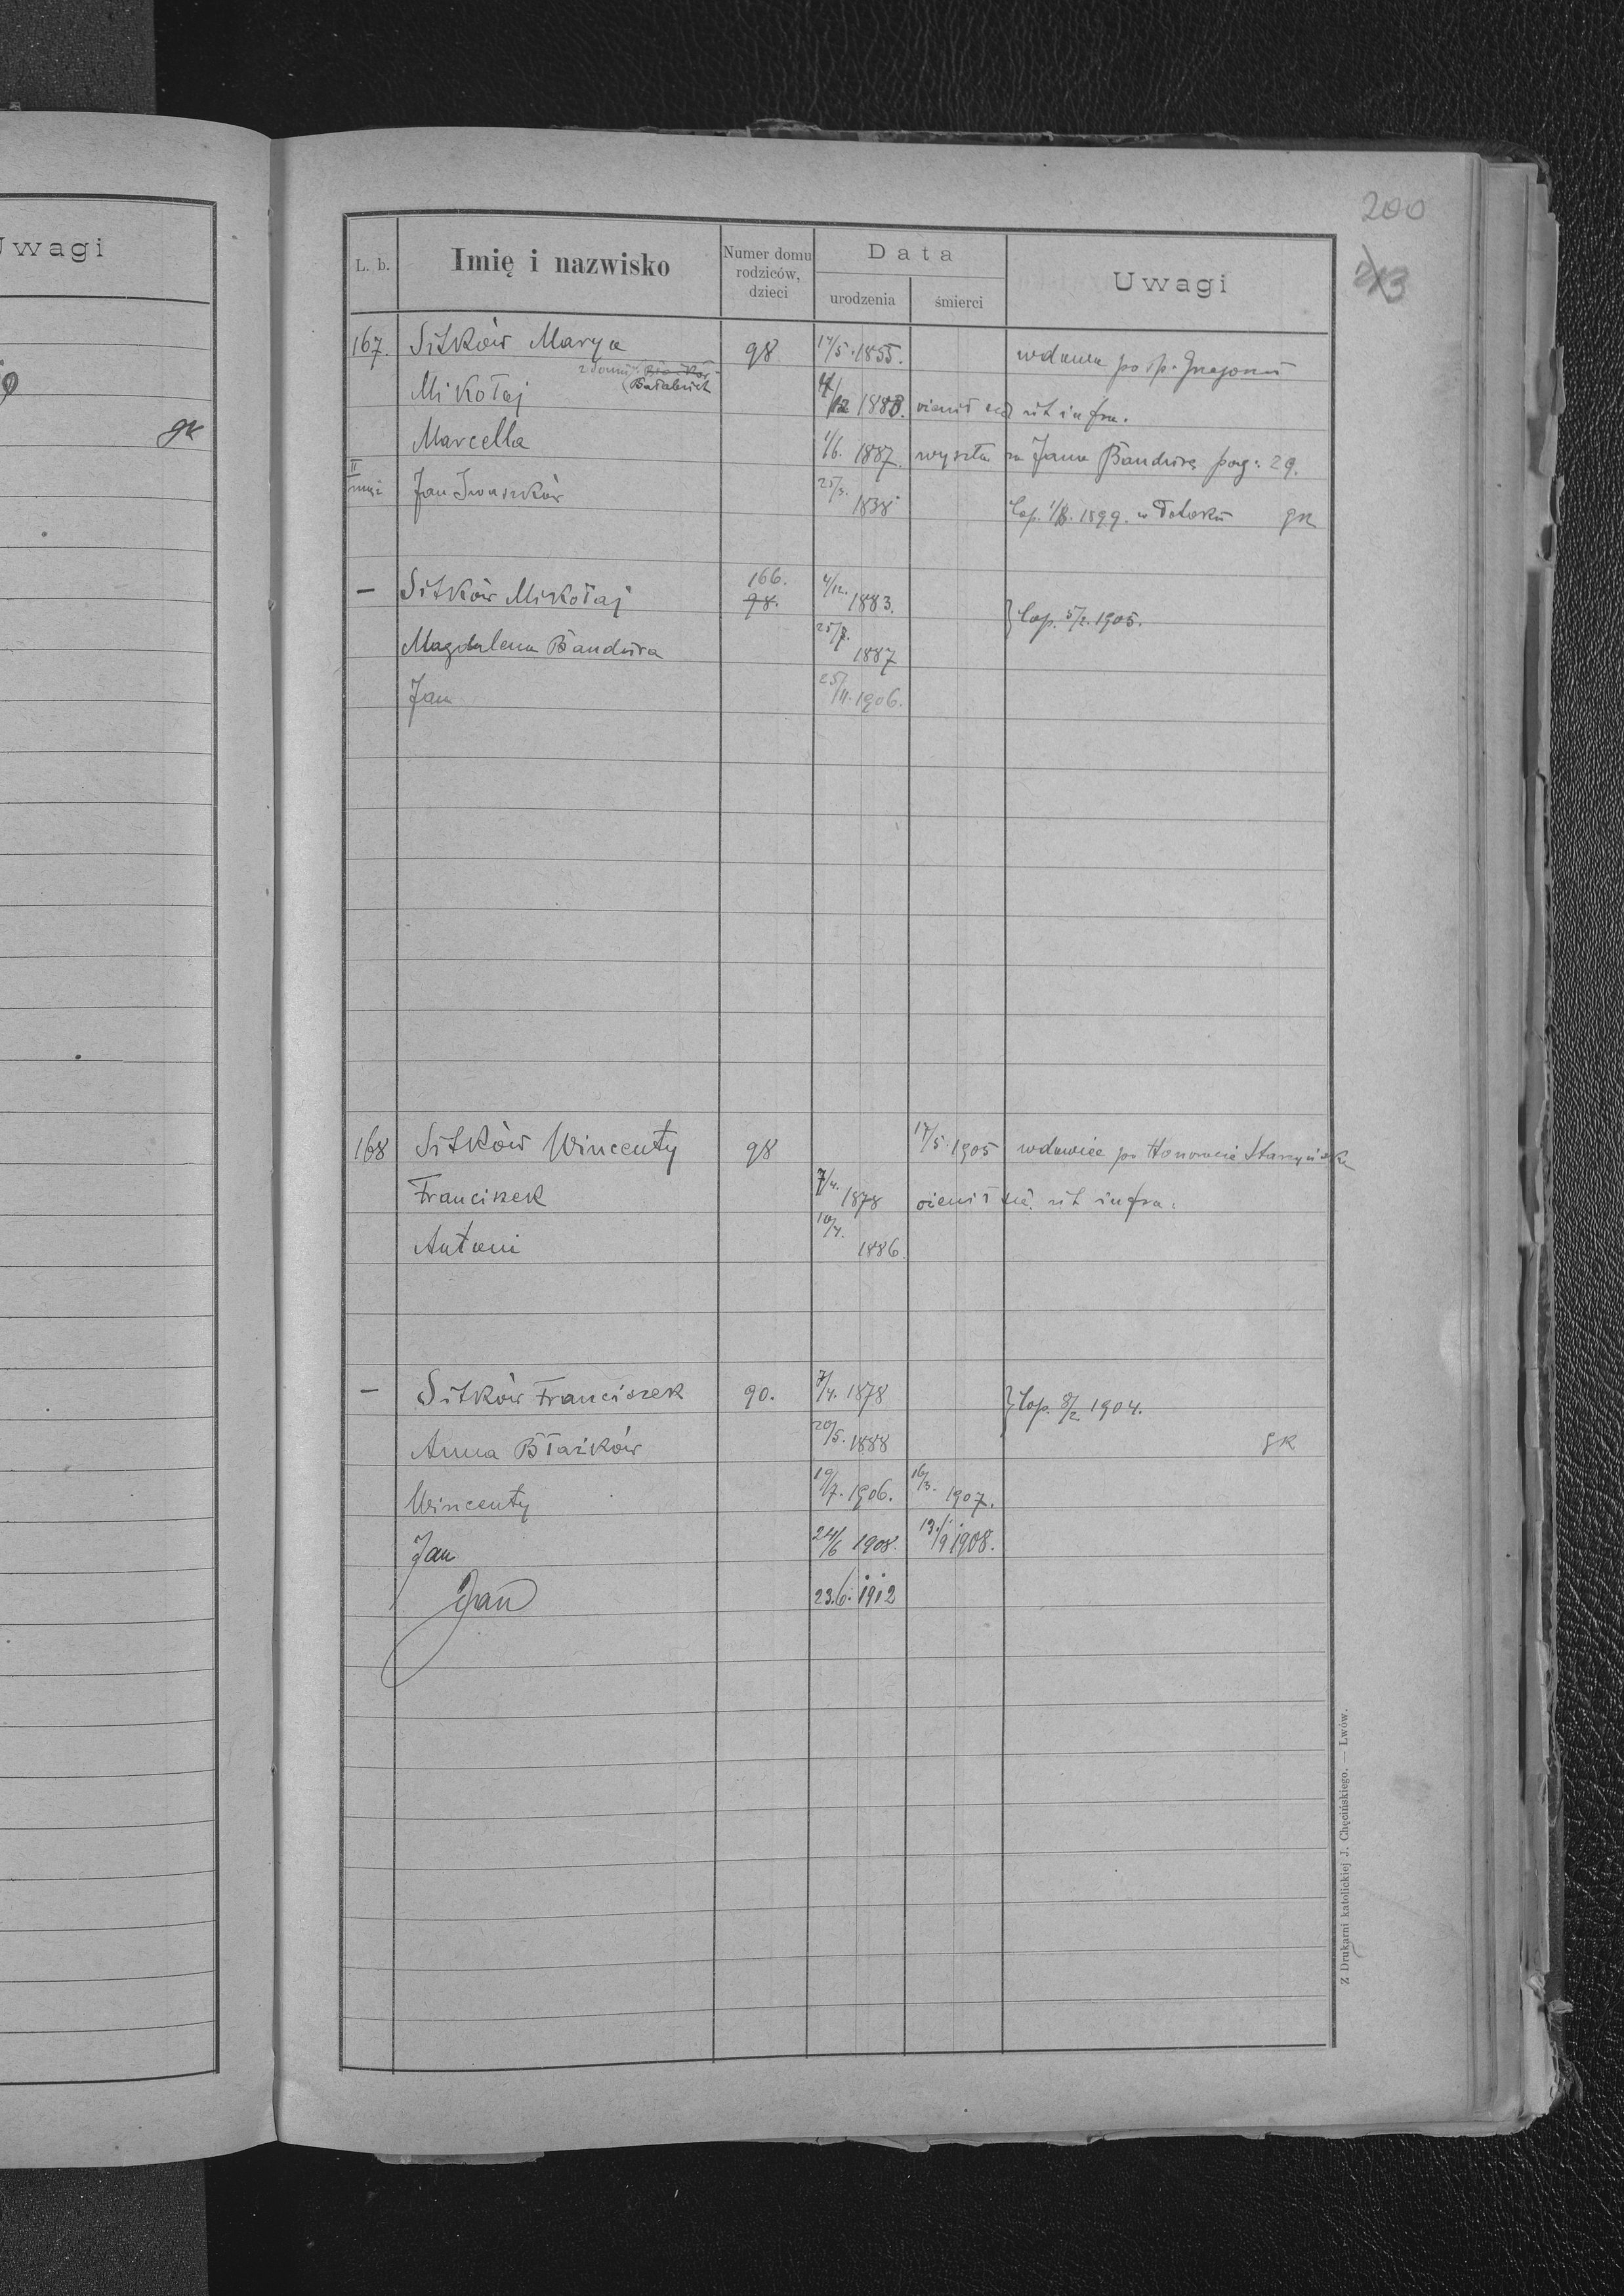 Uwagi
gk
200
213
L. b. Imię i nazwisko Numer domu rodziców, dzieci Data urodzenia śmierci Uwagi
167. Sitków Marya 98 14/5. 1855. wdowa po śp.
z domu Bałabuch
Mikołaj 4/12 1883. ożenił się ut infra.
Marcella 1/6. 1887. wyszła za Jana Bandurę pag: 29.
II mąż Jan Iwaszków 25/3. 1838 Cop. 1899. w Potoku gk
— Sitków Mikołaj 166. 98. 4/12. 1883. } Cop. 5/2. 1905.
Magdalena Bandura 25/7. 1887
Jan 25/11. 1906.
168 Sitków Wincenty 98 17/5. 1905 wdowiec po Honoracie
Franciszek 7/4. 1878 ożenił się ut infra.
Antoni 10/4. 1886.
— Sitków Franciszek 90. 7/4. 1878 } Cop. 8/2 1904.
Anna Błażków 20/5. 1888 gk
Wincenty 19/7. 1906. 16/3. 1907.
Jan 24/6 1908. 13./9 1908.
Jan 23.6. 1912
Z Drukarni katolickiej J. Chęcińskiego. — Lwów.